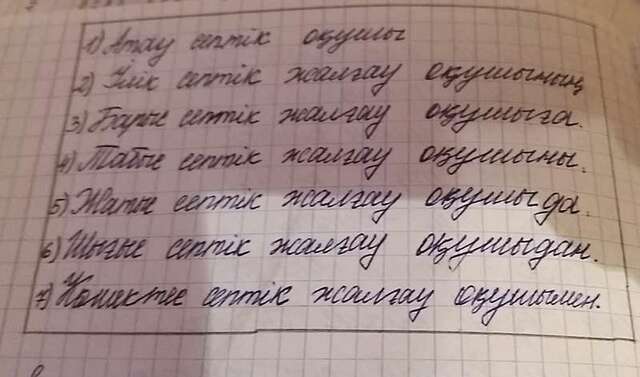 1) Атау септік оқушы
2) Ілік септік жалғау оқушының
3) Барыс септік жалғау оқушыға.
4) Табыс септік жалғау оқушыны.
5) Жатыс септік жалғау оқушыда.
6) Шығыс септік жалғау оқушыдан.
7) Көмектес септік жалғау оқушымен.